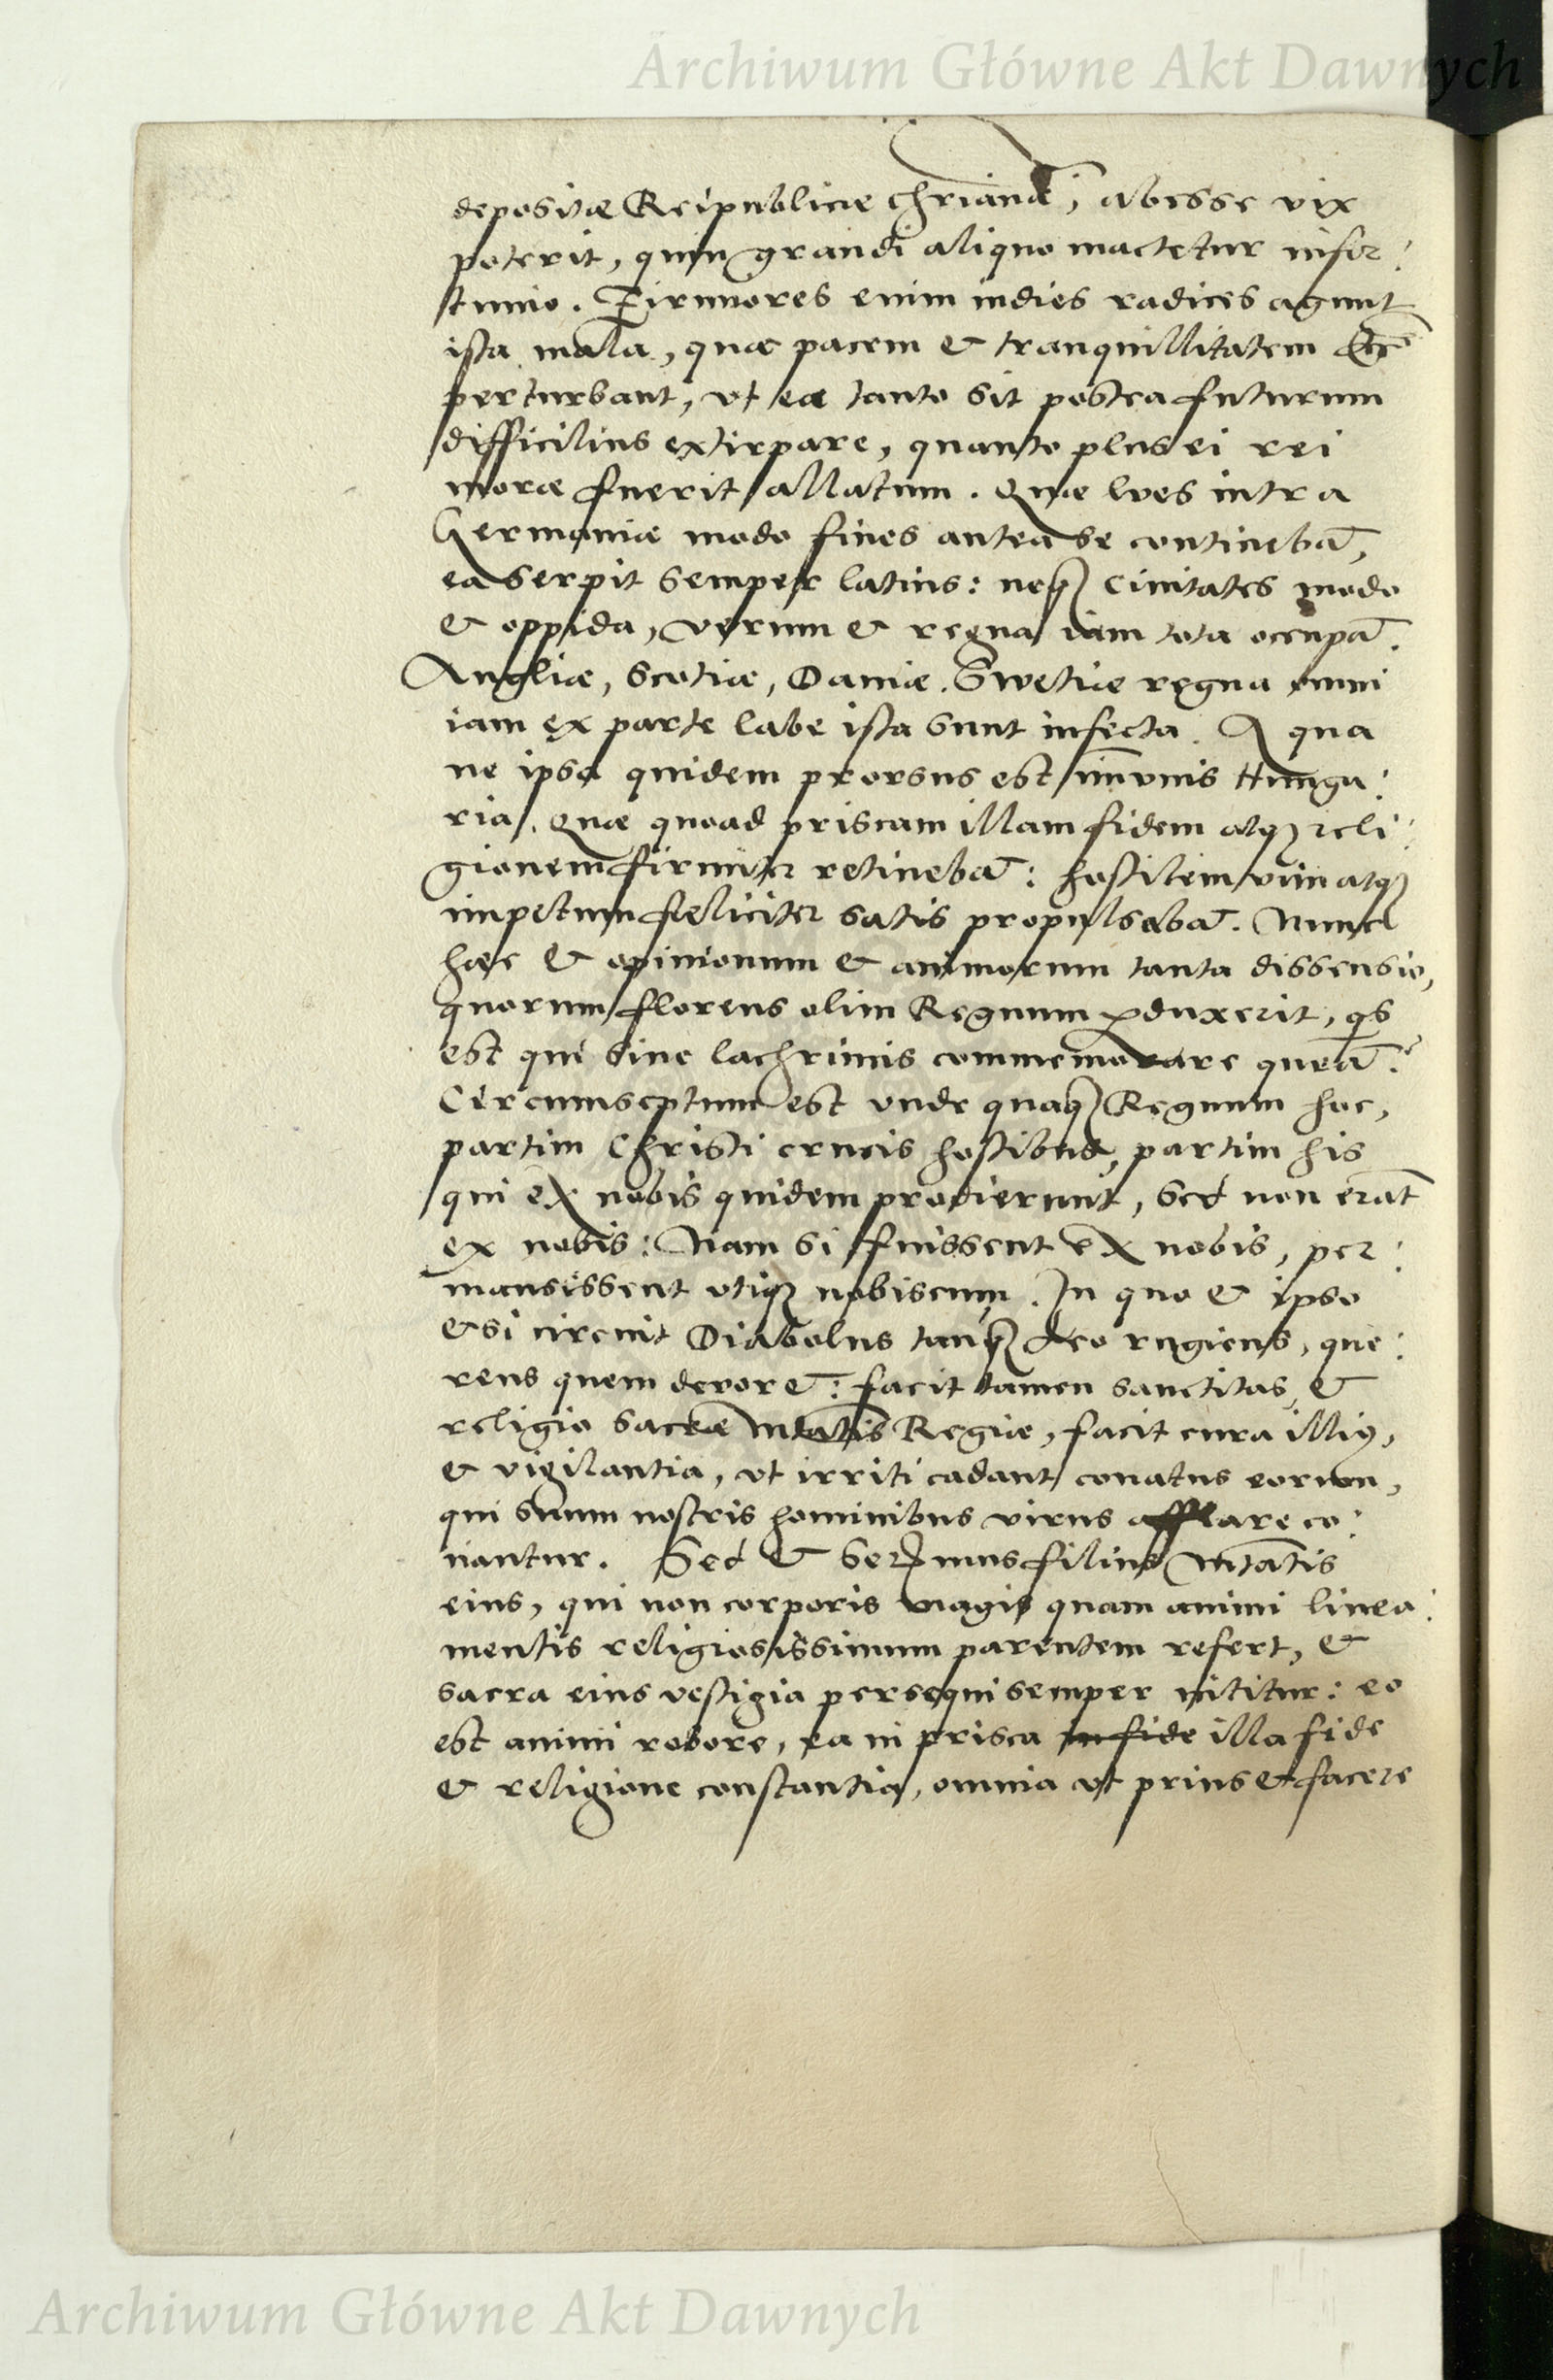 Archiwum Główne Akt Dawnych
depositæ Reipublicæ chrianæ, abesse vix
poterit, quin grandi aliquo mactetur infor:
tunio. Firmiores enim indies radices agunt
ista mala, quæ pacem & tranquillitatem
perturbant, vt ea tanto sit postea futurum
difficilius extirpare, quanto plus ei rei
moræ fuerit allatum. Quæ lues intra
Germaniæ modo fines antea se continebāt,
ea serpit semper latius: neqꝫ Ciuitates modo
& oppida, verum & regna iam tota occupāt.
Angliæ, Scotiæ, Daniæ, Swetiæ regna omni
iam ex parte labe ista sunt infecta. A qua
ne ipsa quidem prorsus est im̄unis Hunga:
ria. Quæ quoad priscam illam fidem atqꝫ reli:
gionem firmiter retinebāt: hostilem vim atqꝫ
impetum fœliciter satis propulsabāt. Nunc
hæc & opinionum & animorum tanta dissensio,
quorum florens olim Regnum ꝑduxerit, qs
est qui sine lachrimis commemorare queāt?
Circumseptum est vnde quaqꝫ Regnum hoc,
partim Christi crucis hostibus, partim his
qui ex nobis quidem prodierunt, sed non erāt
ex nobis: Nam si fuissent ex nobis, per:
mansissent vtiqꝫ nobiscum. In quo & ipso
etsi circuit Diabolus tanqꝫ Leo rugiens, que:
rens quem devorēt: facit tamen sanctitas, &
religio sacræ Mtātis Regiæ, facit cura illiꝰ,
& vigilantia, vt irriti cadant conatus eorum,
qui suum nostris hominibus virus afflare co:
nantur. Sed & Serꝫmus filius Mtātis
eius, qui non corporis magis quam animi linea:
mentis religiosissimum parentem refert, &
sacra eius vestigia persequi semper nititur: eo
est animi robore, ea in prisca in fide illa fide
& religione constantia, omnia vt prius & facere
Archiwum Główne Akt Dawnych